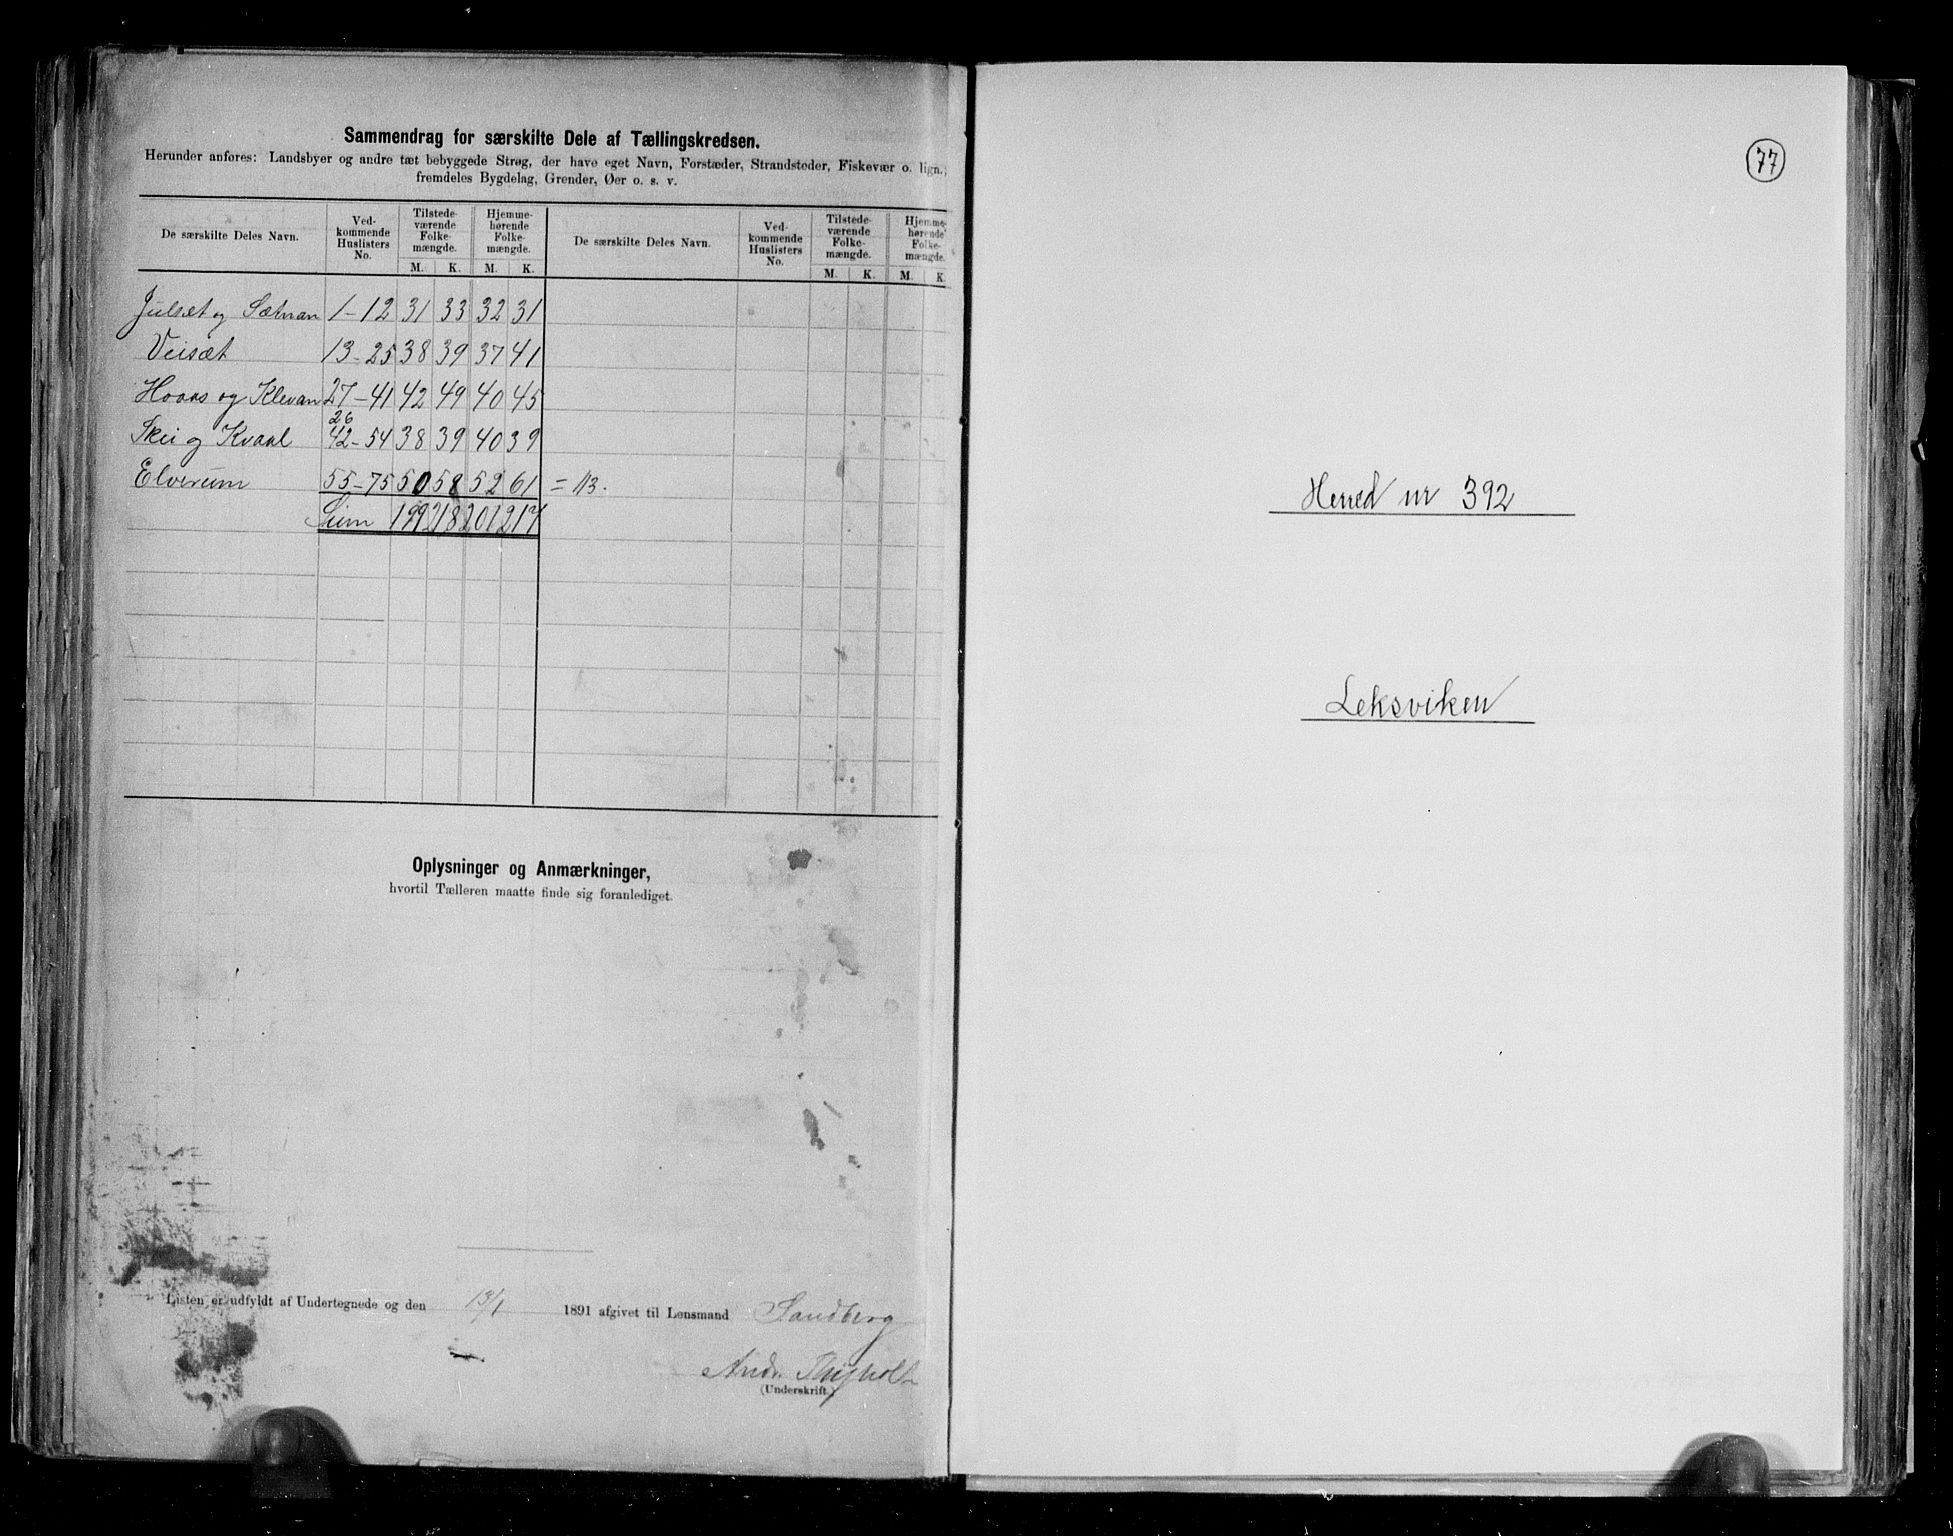 Sammendrag for særskilte Dele af Tællingskredsen.
Herunder anføres: Landsbyer og andre tæt bebyggede Strøg, der have eget Navn, Forstæder, Strandsteder, Fiskevær o. lign.,
fremdeles Bygdelag, Grender, Øer o. s. v.
De særskilte Deles Navn. Ved-kommende Huslisters No. Tilstede-værende Folke-mængde. Hjemme-hørende Folke-mængde. De særskilte Deles Navn. Ved-kommende Huslisters No. Tilstede-værende Folke-mængde. Hjemme-hørende Folke-mængde.
M. K. M. K. M. K. M. K.
Julset og Sætnan 1-12 31 33 32 31
Veisæt 13-25 38 39 37 41
Hoaas og Klevan 27-41 42 49 40 45
26
Skei og Kvaal 42-54 38 39 40 39
Elverum 55-75 50 58 52 61 = 113.
Sum 199 218 201 217
Oplysninger og Anmærkninger,
hvortil Tælleren maatte finde sig foranlediget.
Listen er udfyldt af Undertegnede og den 13/1 1891 afgivet til Lensmand Sandberg
Andr.
(Underskrift.)
77
Herred nr 392
Leksviken